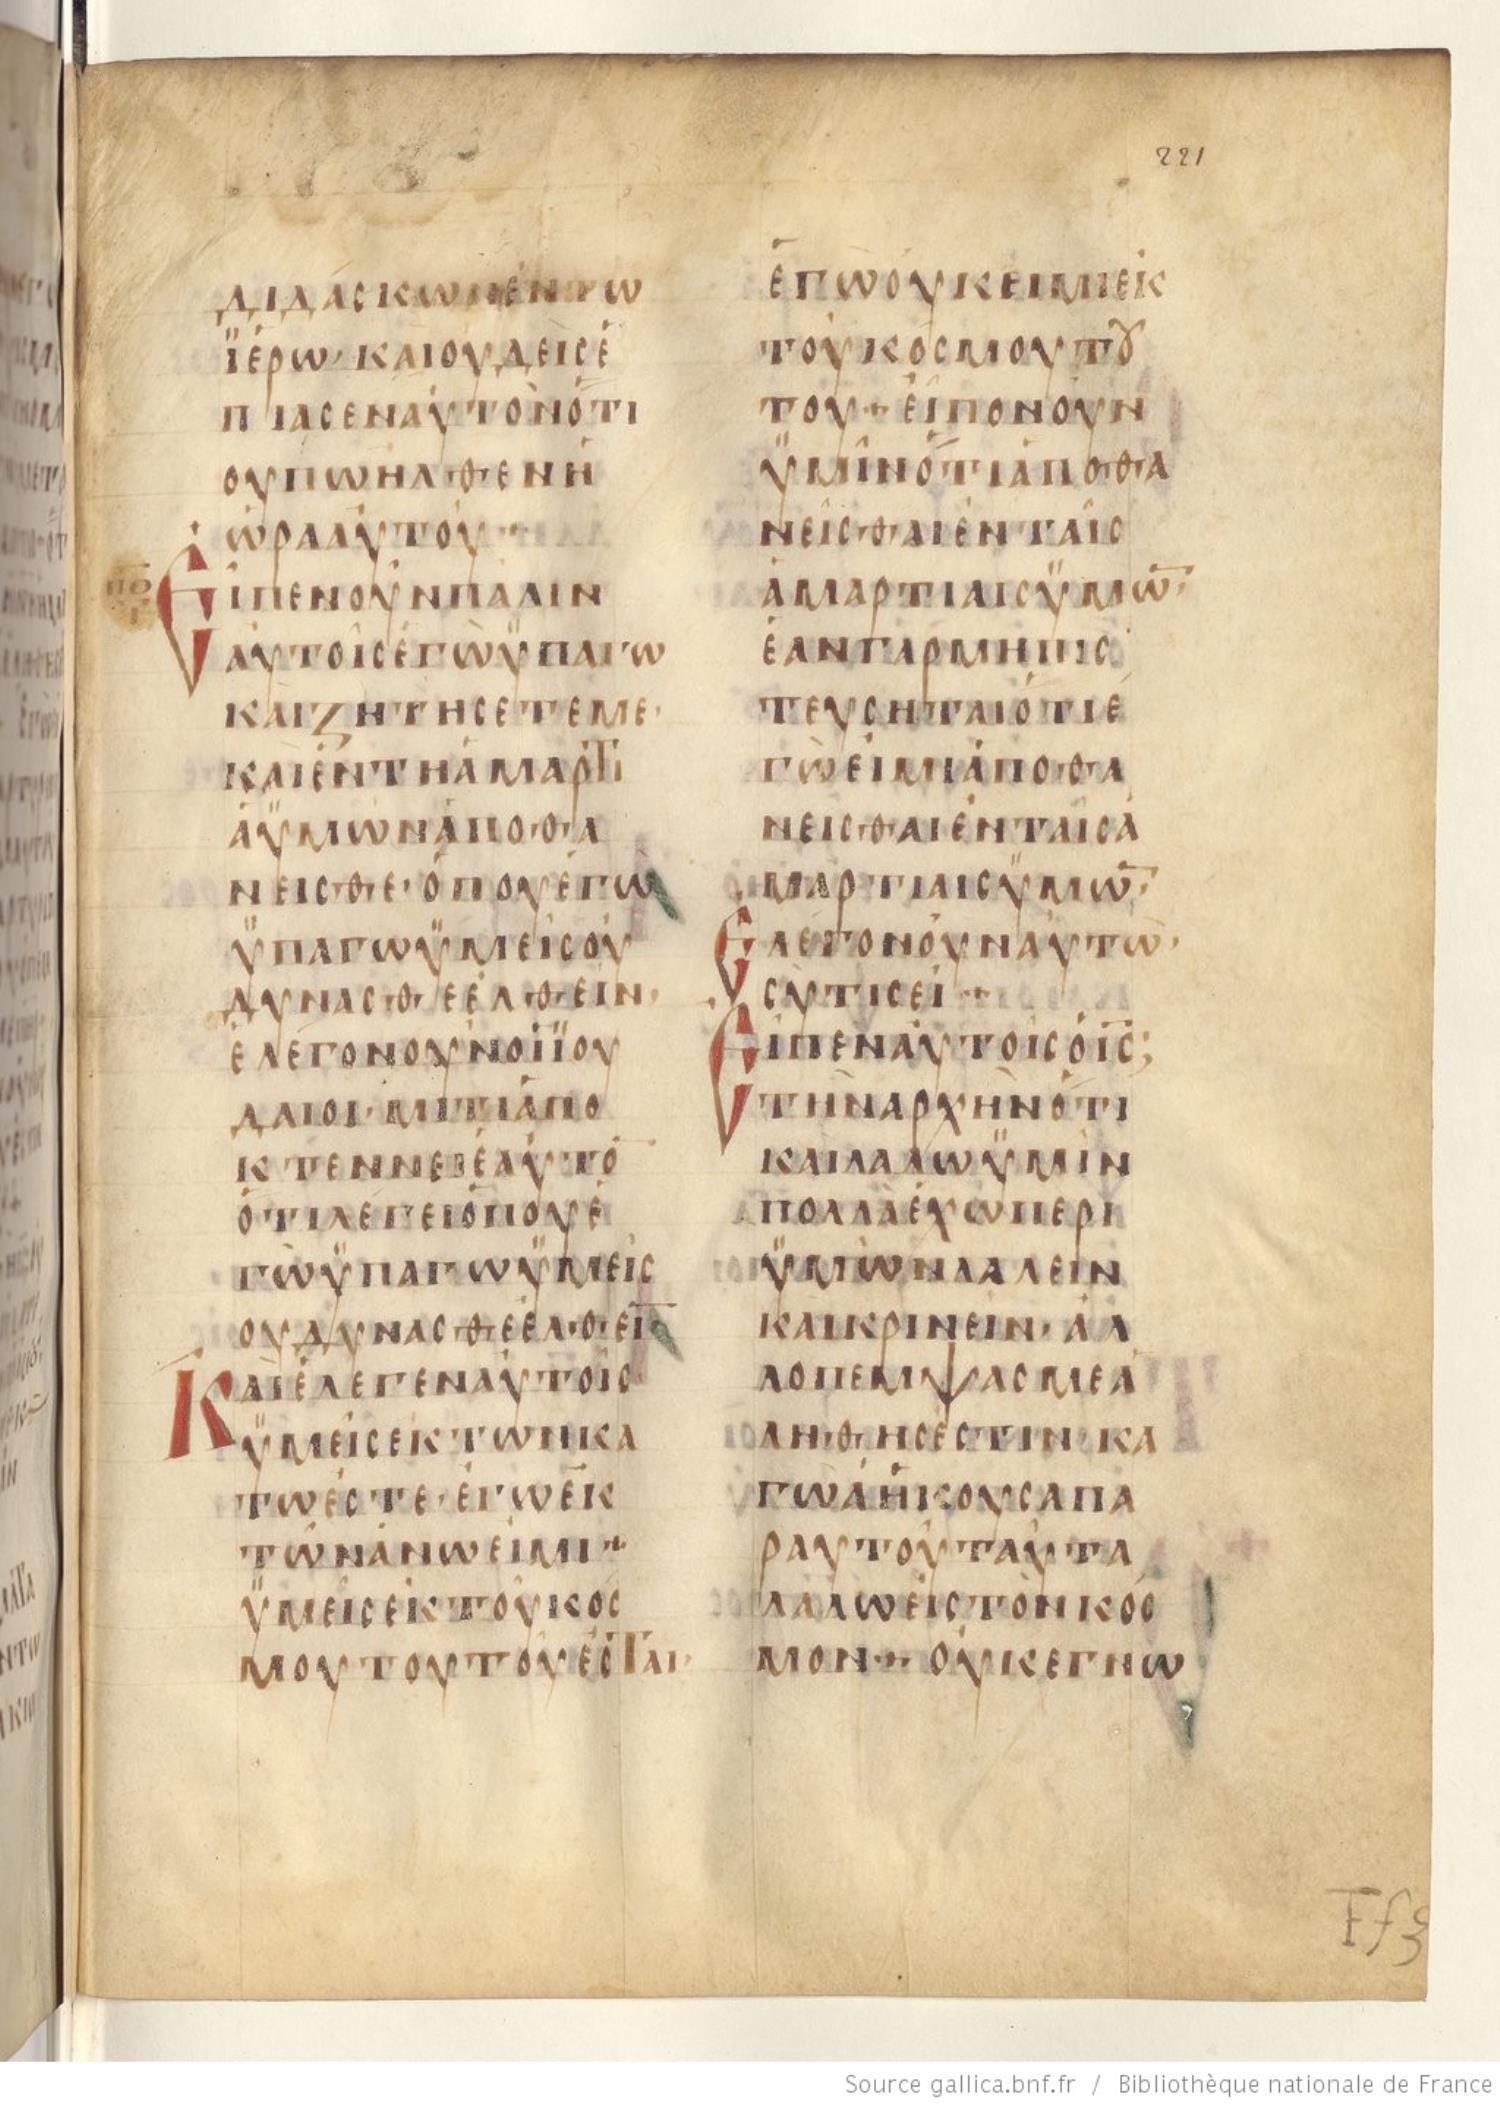 221
ΔΙΔΑСΚΩΝΕΝΤΩ
ΪΕΡΩ· ΚΑΙΟΥΔΕΙСΕ
ΠΙΑСΕΝΑΥΤΟΝΟΤΙ
ΟΥΠΩΗΛΘΕΝΗ
ΩΡΑΑΥΤΟΥ
ΕΙΠΕΝΟΥΝΠΑΛΙΝ
ΑΥΤΟΙСΕΓΩΫΠΑΓΩ
ΚΑΙΖΗΤΗСΕΤΕΜΕ·
ΚΑΙΕΝΤΗΑΜΑΡΤΙ
ΑΫΜΩΝΑΠΟΘΑ
ΝΕΙСΘΕ· ΟΠΟΥΕΓΩ
ΫΠΑΓΩΫΜΕΙСΟΥ
ΔΥΝΑСΘΕΕΛΘΕΙΝ·
ΕΛΕΓΟΝΟΥΝΟΙΪΟΥ
ΔΑΙΟΙ· ΜΙΤΙΑΠΟ
ΚΤΕΝΝΕΙΕΑΥΤΟ̅
ΟΤΙΛΕΓΕΙΟΠΟΥΕ
ΓΩΫΠΑΓΩΫΜΕΙС
ΟΥΔΥΝΑСΘΕΕΛΘΕΙ̅
ΚΑΙΕΛΕΓΕΝΑΥΤΟΙС
ΫΜΕΙСΕΚΤΩΝΚΑ
ΤΩΕСΤΕ· ΕΓΩΕΚ
ΤΩΝΑΝΩΕΙΜΙ
ΫΜΕΙСΕΚΤΟΥΚΟС
ΜΟΥΤΟΥΤΟΥΕСΤΑΙ·
ΕΓΩΟΥΚΕΙΜΙΕΚ
ΤΟΥΚΟСΜΟΥΤȢ
ΤΟΥ· ΕΙΠΟΝΟΥΝ
ΫΜΙΝΟΤΙΑΠΟΘΑ
ΝΕΙСΘΑΙΕΝΤΑΙС
ΑΜΑΡΤΙΑΙСΫΜΩ̅·
ΕΑΝΓΑΡΜΗΠΙС
ΤΕΥСΗΤΑΙΟΤΙΕ
ΓΩΕΙΜΙΑΠΟΘΑ
ΝΕΙСΘΑΙΕΝΤΑΙСΑ
ΜΑΡΤΙΑΙСΫΜΩ̅·
ΕΛΕΓΟΝΟΥΝΑΥΤΩ·
СΥΤΙСΕΙ
ΕΙΠΕΝΑΥΤΟΙСΟΙ̅С̅;
ΤΗΝΑΡΧΗΝΟΤΙ
ΚΑΙΛΑΛΩΫΜΙΝ
ΠΟΛΛΑΕΧΩΠΕΡΙ
ΫΜΩΝΛΑΛΕΙΝ
ΚΑΙΚΡΙΝΕΙΝ· ΑΛ
ΛΟΠΕΜΨΑСΜΕΑ
ΛΗΘΗСΕСΤΙΝ· ΚΑ
ΓΩΑΗΚΟΥСΑΠΑ
ΡΑΥΤΟΥΤΑΥΤΑ
ΛΑΛΩΕΙСΤΟΝΚΟС
ΜΟΝ· ΟΥΚΕΓΝΩ
Ff3
Source gallica.bnf.fr / Bibliothèque nationale de France